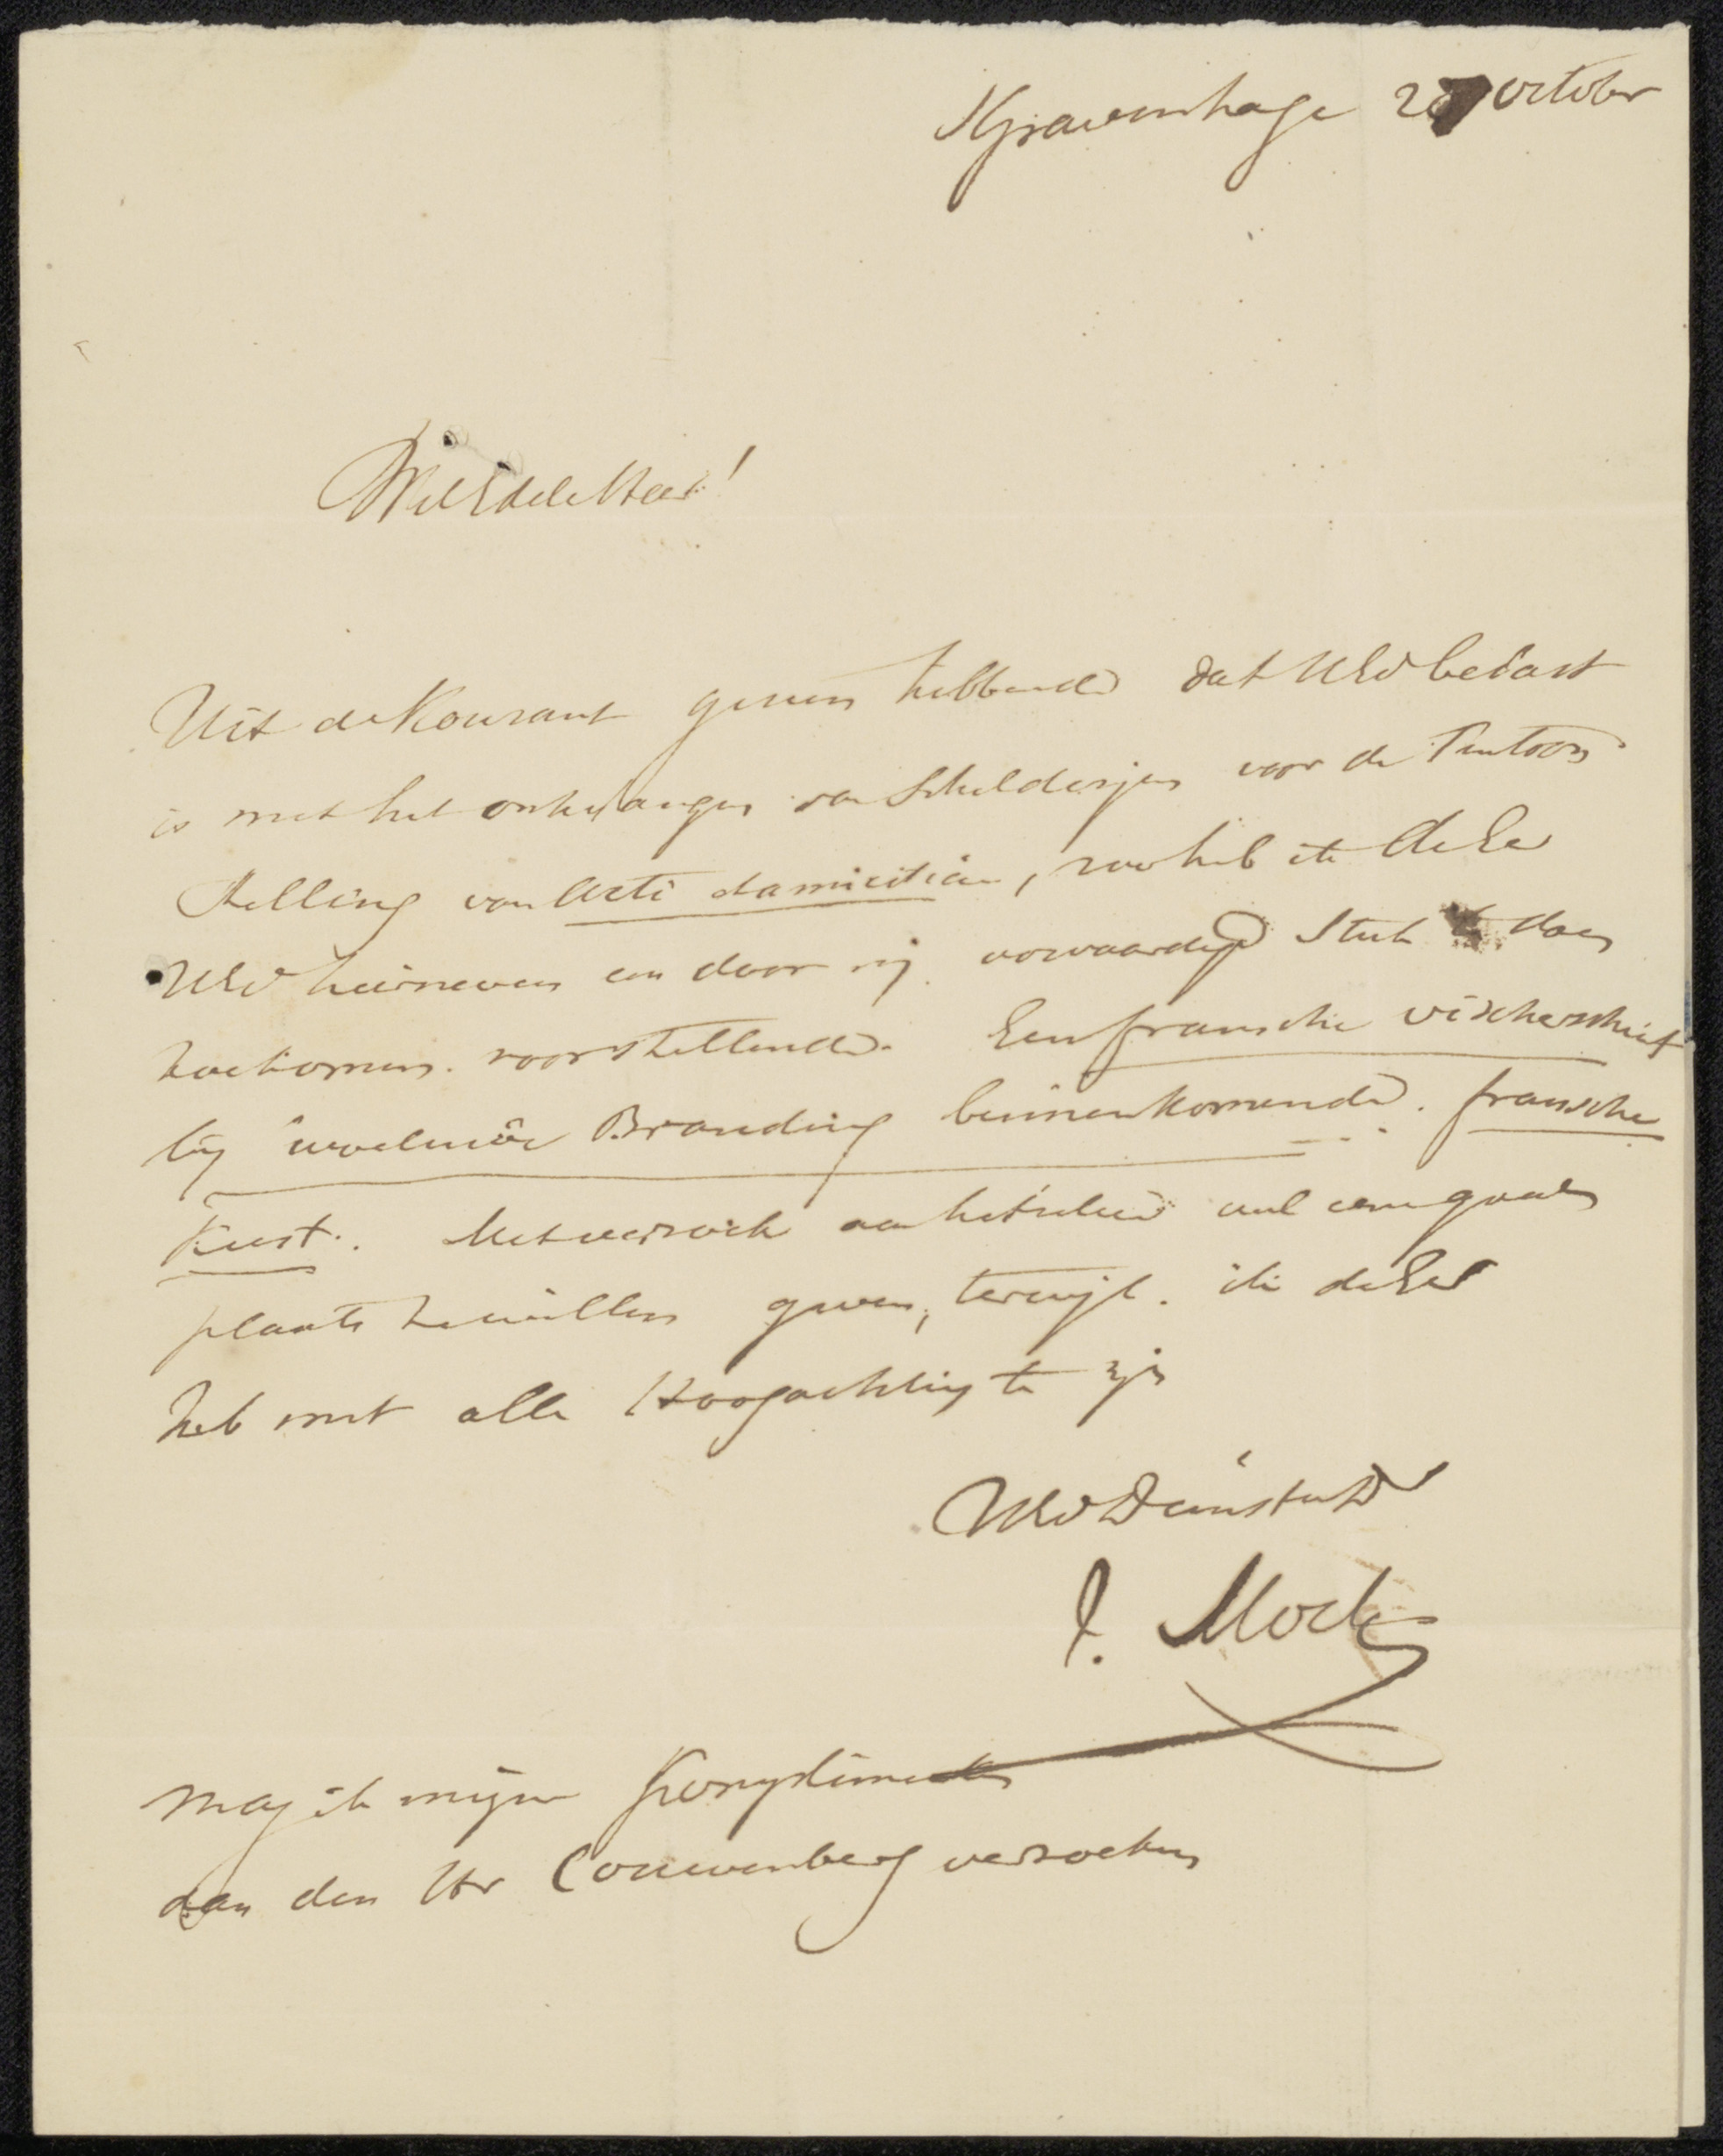 SGravenhage 20 october
WelEdele Heer!
Uit de Kourant gesien hebbende dat UEd belast
is met het ontvangen van Schilderijen voor de Tentoon
stelling van Arti et amicitiae, zoo heb ik de Eer
UEd hiernevens een door mij vervaardigd Stuk te doen
toekomen. voorstellende. Een fransche visscherschuit
bij woelende Branding binnenkomende. fransche
Kust. Met verzoek aan hetzelve wel eene goede
plaats te willen geven, terwijl ik de Eer
heb met alle Hoogachting te zijn
UEd Dienstw Dr
J. Mock
Mag ik mijne Komplimenten
aan den Hr Couwenberg verzoeken